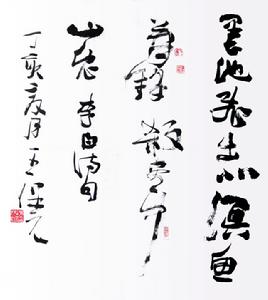 墨池飛出北溟魚
筆鋒殺盡中
山兔 李白诗句
丁亥夏月